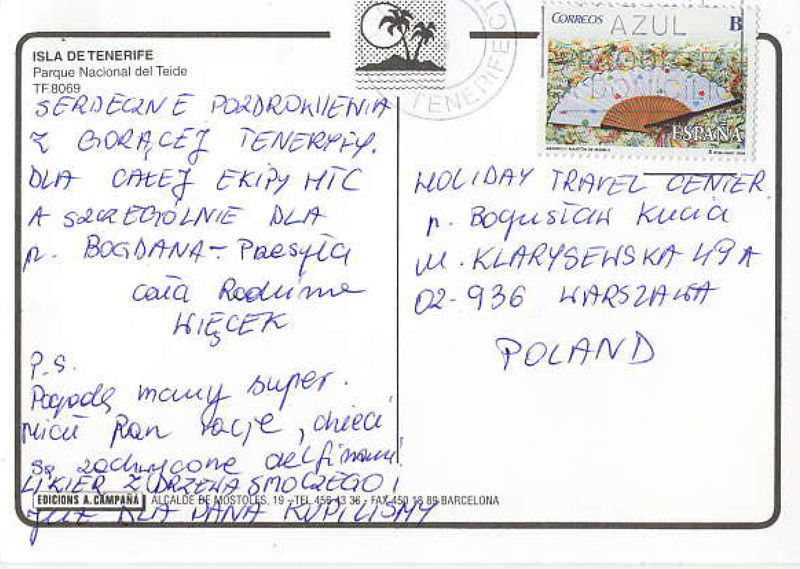 ISLA DE TENERIFE
Parque Nacional del Teide
TF.8069
SERDECZNE POZDROWIENIA
Z GORĄCEJ TENERYFY.
DLA CAŁEJ EKIPY HTC
A SZCZEGÓLNIE DLA
p. BOGDANA - Przesyła
cała Rodzina
WIĘCEK
P.S.
Pogodę mamy super.
Miał Pan rację, dzieci
są zachwycone delfinami
LIKIER Z DRZEWA SMOCZEGO
JUŻ DLA PANA KUPILIŚMY
EDICIONS A. CAMPAÑÁ ALCALDE DE MOSTOLES, 19 - TEL. 456 43 36 - FAX 450 18 88 BARCELONA
TENERIFE
CORREOS B
AZUL
ESPAÑA
HOLIDAY TRAVEL CENTER
p. Bogusław Kucia
ul. KLARYSEWSKA 49A
02-936 WARSZAWA
POLAND